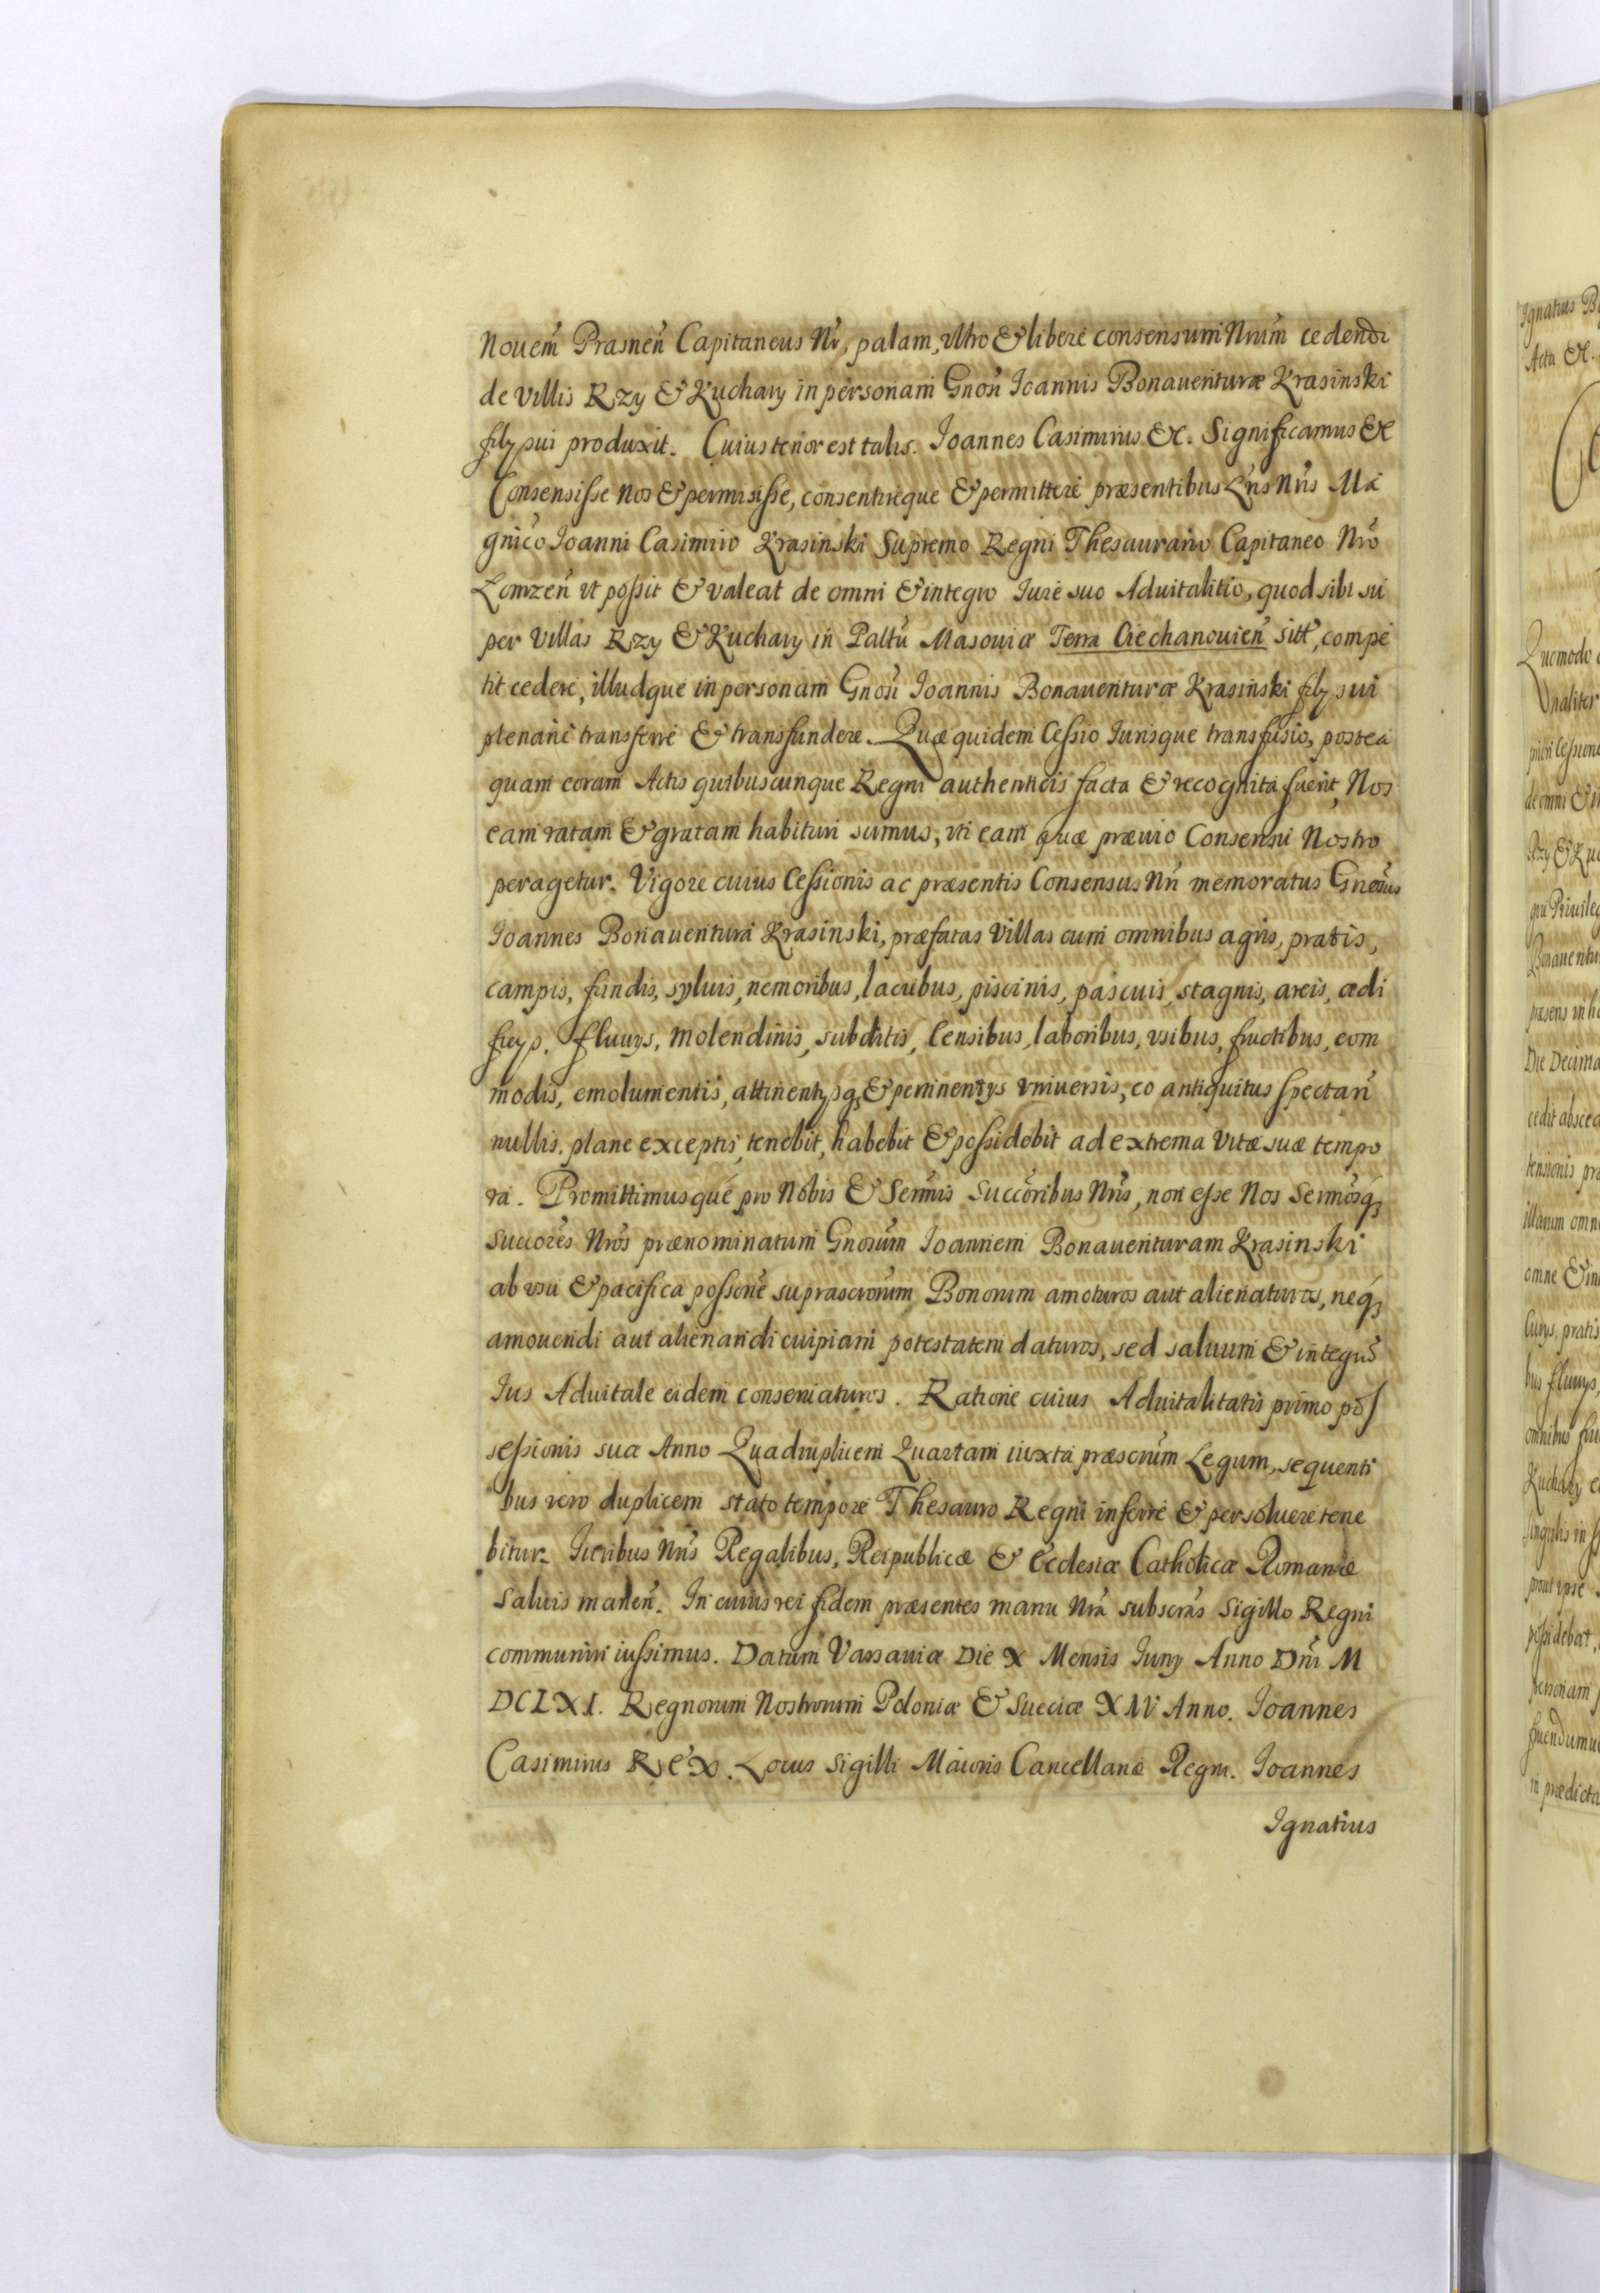 Nouem̃ Prasneñ Capitaneus Nr̃, palam, vltro & libere consensum Nrũm cedendi
de Villis Rzy & Kuchary in personam Gnosi Ioannis Bonauenturæ Krasinski
filij sui produxit. Cuius tenor est talis. Ioannes Casimirus &c. Significamus &c
Consensisse nos & permisisse, consentireque & permittere præsentibus Lr̃is Nr̃is Ma
gnifico Ioanni Casimiro Krasinski Supremo Regni Thesaurario Capitaneo Nrõ
Lomzeñ vt possit & valeat de omni & integro Iure suo Aduitalitio, quod sibi su
per Villas Rzy & Kuchary in Paltũ Masouiæ Terra Ciechanouieñ sitt̃, compe
tit cedere, illudque in personam Gnosi Ioannis Bonauenturæ Krasinski filij sui
plenarie transferre & transfundere. Quæ quidem Cessio Iurisque transfusio, postea
quam coram Actis quibuscunque Regni authenticis facta & recognita fuerit, Nos
eam ratam & gratam habituri sumus, vti eam quæ præuio Consensu Nostro
peragetur. Vigore cuius Cessionis ac præsentis Consensus Nri memoratus Gnosus
Ioannes Bonauentura Krasinski, præfatas Villas cum omnibus agris, pratis,
campis, fundis, syluis, nemoribus, lacubus, piscinis, pascuis, stagnis, areis, ædi
ficijs, fluuijs, molendinis, subditis, Censibus, laboribus, vsibus, fructibus, com
modis, emolumentis, attinentijsq; & pertinentijs vniuersis, eo antiquitus spectañ
nullis plane exceptis, tenebit, habebit & possidebit ad extrema vitæ suæ tempo
ra. Promittimusque pro Nobis & Sermis Succoribus Nris, non esse Nos Sermosq;
Succores Nros prænominatum Gnosum Ioannem Bonauenturam Krasinski
ab vsu & pacifica possone suprascrorum Bonorum amoturos aut alienaturos, neq;
amouendi aut alienandi cuipiam potestatem daturos, sed saluum & integrũ
Ius Aduitale eidem conseruaturos. Ratione cuius Aduitalitatis primo pos
sessionis suæ Anno Quadruplicem Quartam iuxta præscrum Legum, sequenti
bus vero duplicem stato tempore Thesauro Regni inferre & persoluere tene
bitur. Iuribus Nris Regalibus, Reipublicæ & Ecclesiæ Catholicæ Romanæ
saluis maneñ. In cuius rei fidem præsentes manu Nra subscras Sigillo Regni
communiri iussimus. Datum Varsauiæ Die X Mensis Iunij Anno Dni M
DCLXI. Regnorum Nostrorum Poloniæ & Sueciæ XIV Anno. Ioannes
Casimirus Rex. Locus Sigilli Maioris Cancellariæ Regni. Ioannes
Ignatius
Ignatius
Acta &c.
Quomodo
de omni &
Rzy &
præsens in
Die Decima
omne &
Kuchary
prout ipse
possidebat,
personam
in prædicta